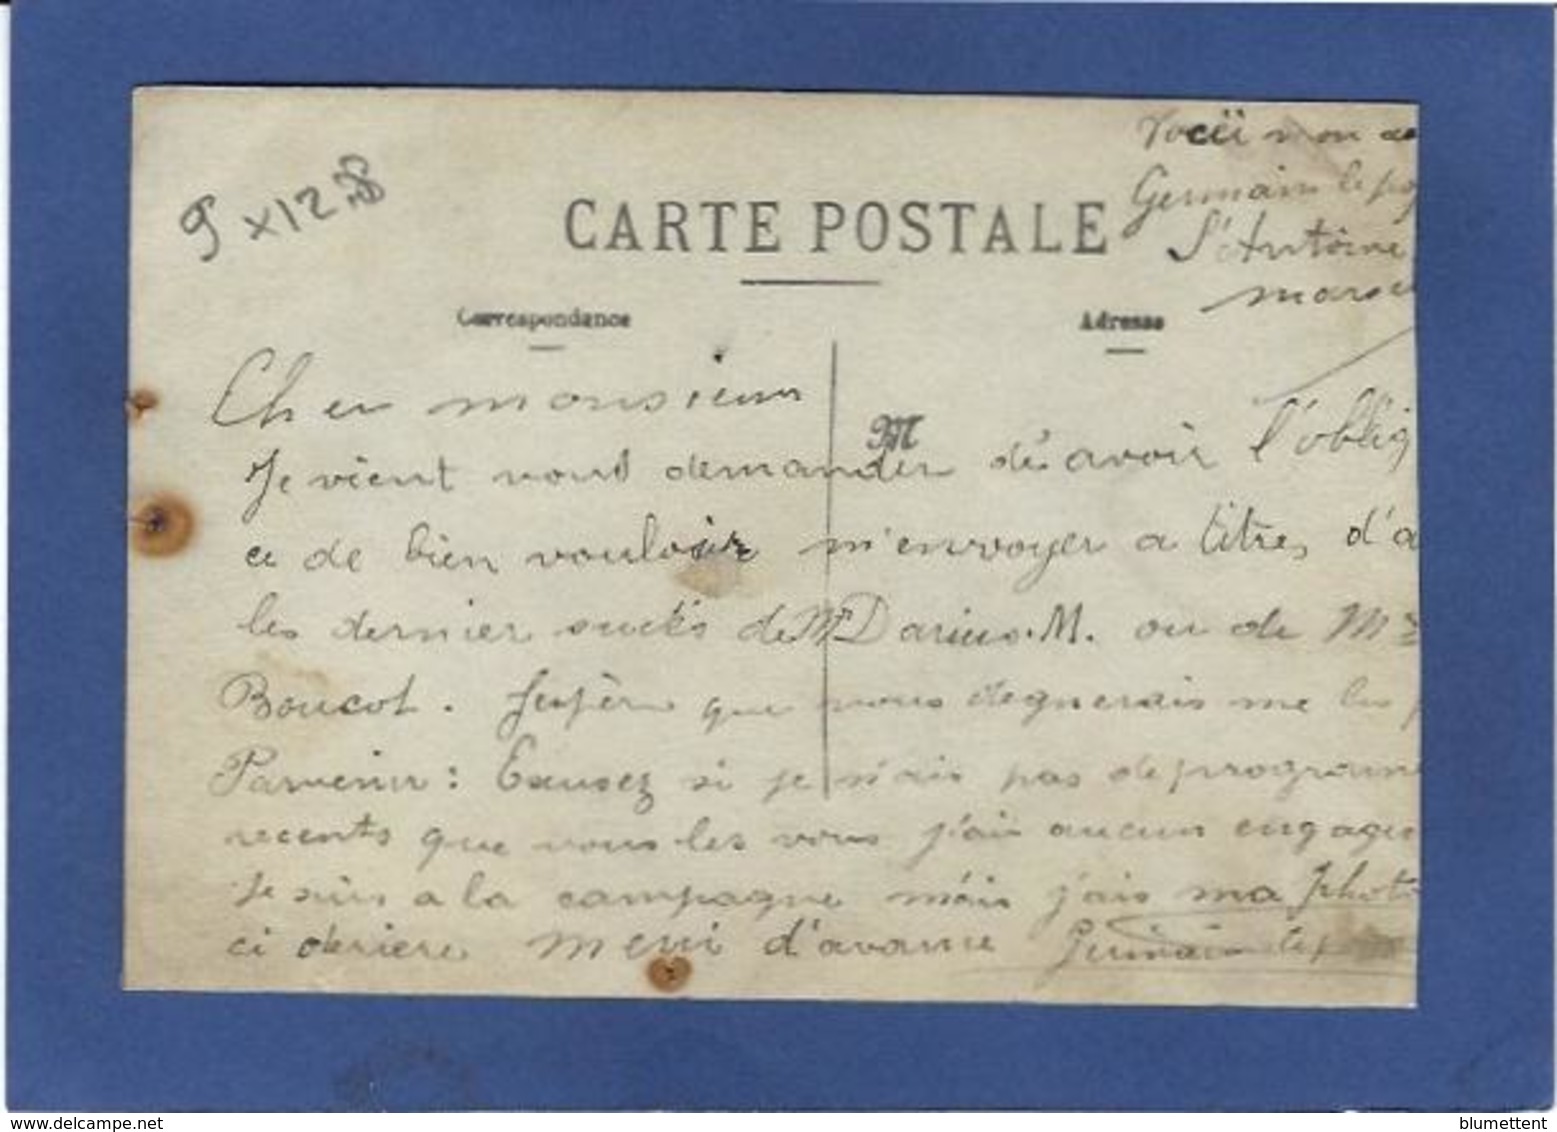 Vocii mon
Germain le
St Antoine
9 x 12
CARTE POSTALE
Correspondance
Adresse
Cher monsieur
M
Je vient vous demander de avoir l'oblig
ce de bien vouloir m'envoyer a titres d'a
les dernier succès de Mr Darius. M. ou de Mr
Boucot. Jespère que vous degnerais me les
Parvenir : Exusez si je n'ais pas de programm
recents que vous les vous j'ais aucun engage
Je suis a la campagne mais j'ais ma photo
ci deriere Merci d'avance Germain le
www.delcampe.net
blumettent